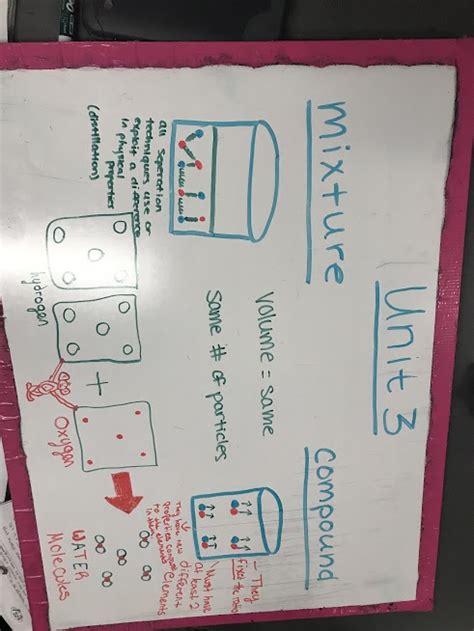 Unit 3
mixture
compound
volume = same
same # of particles
all seperation
techniques use or
exploit a difference
in physical
properties
(distillation)
hydrogen
+
oxygen
- They
fixed
Must have
at least 2
different
elements
They have new
properties
to the
WATER
Molecules